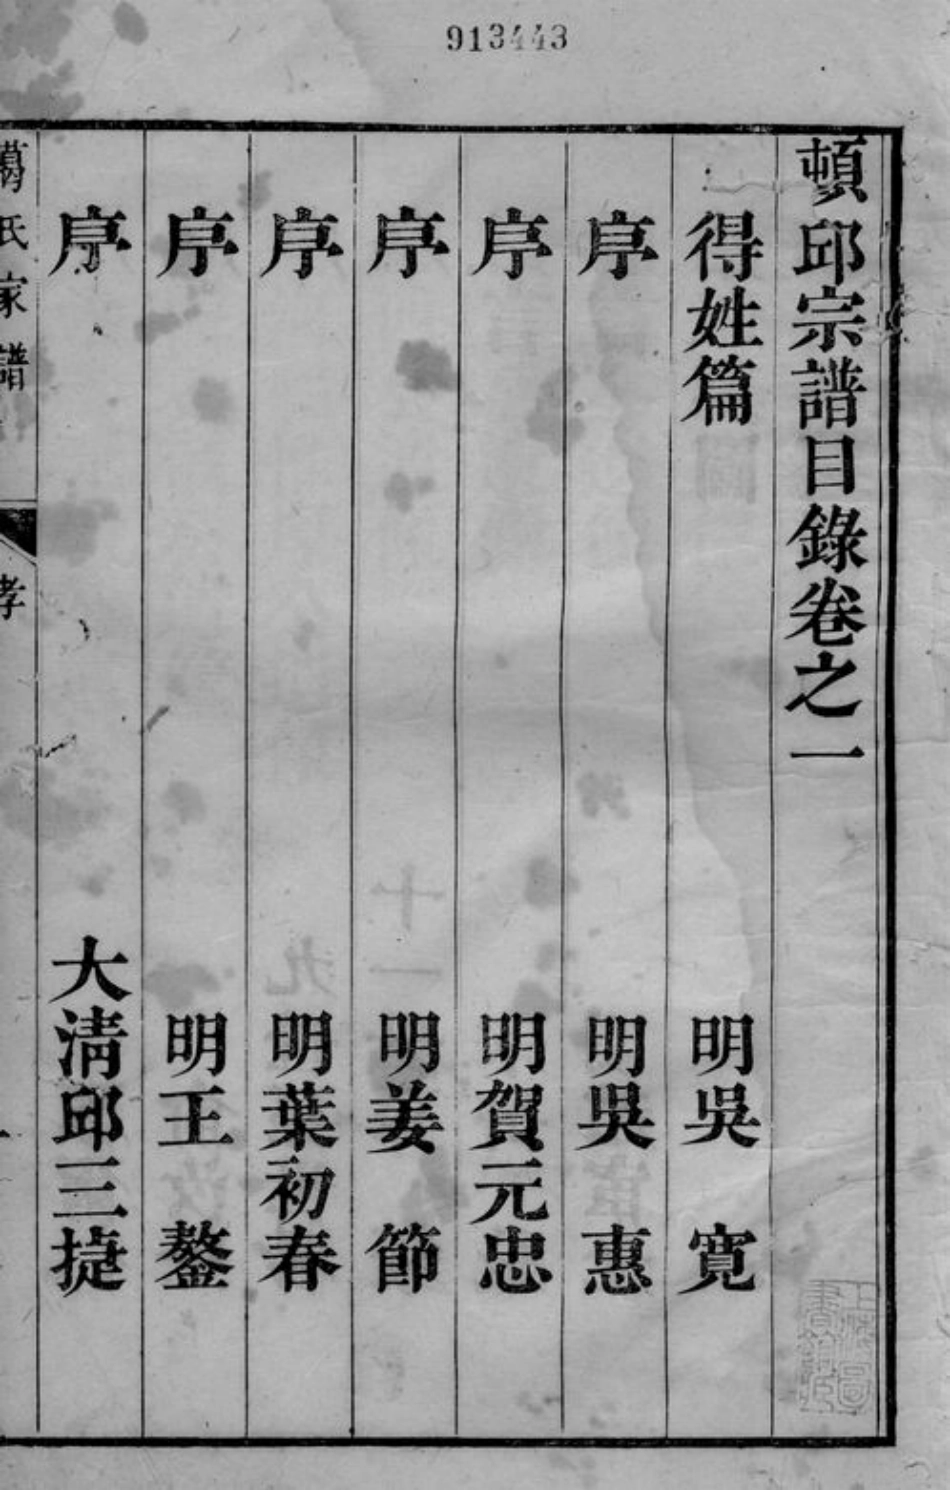 913443
頓邱宗譜目錄卷之一
得姓篇 明吳 寬
序 明吳 惠
序 明賀元忠
序 明姜 節
序 明葉初春
序 明王 鏊
序 大清邱三捷
葛氏家譜 孝 一